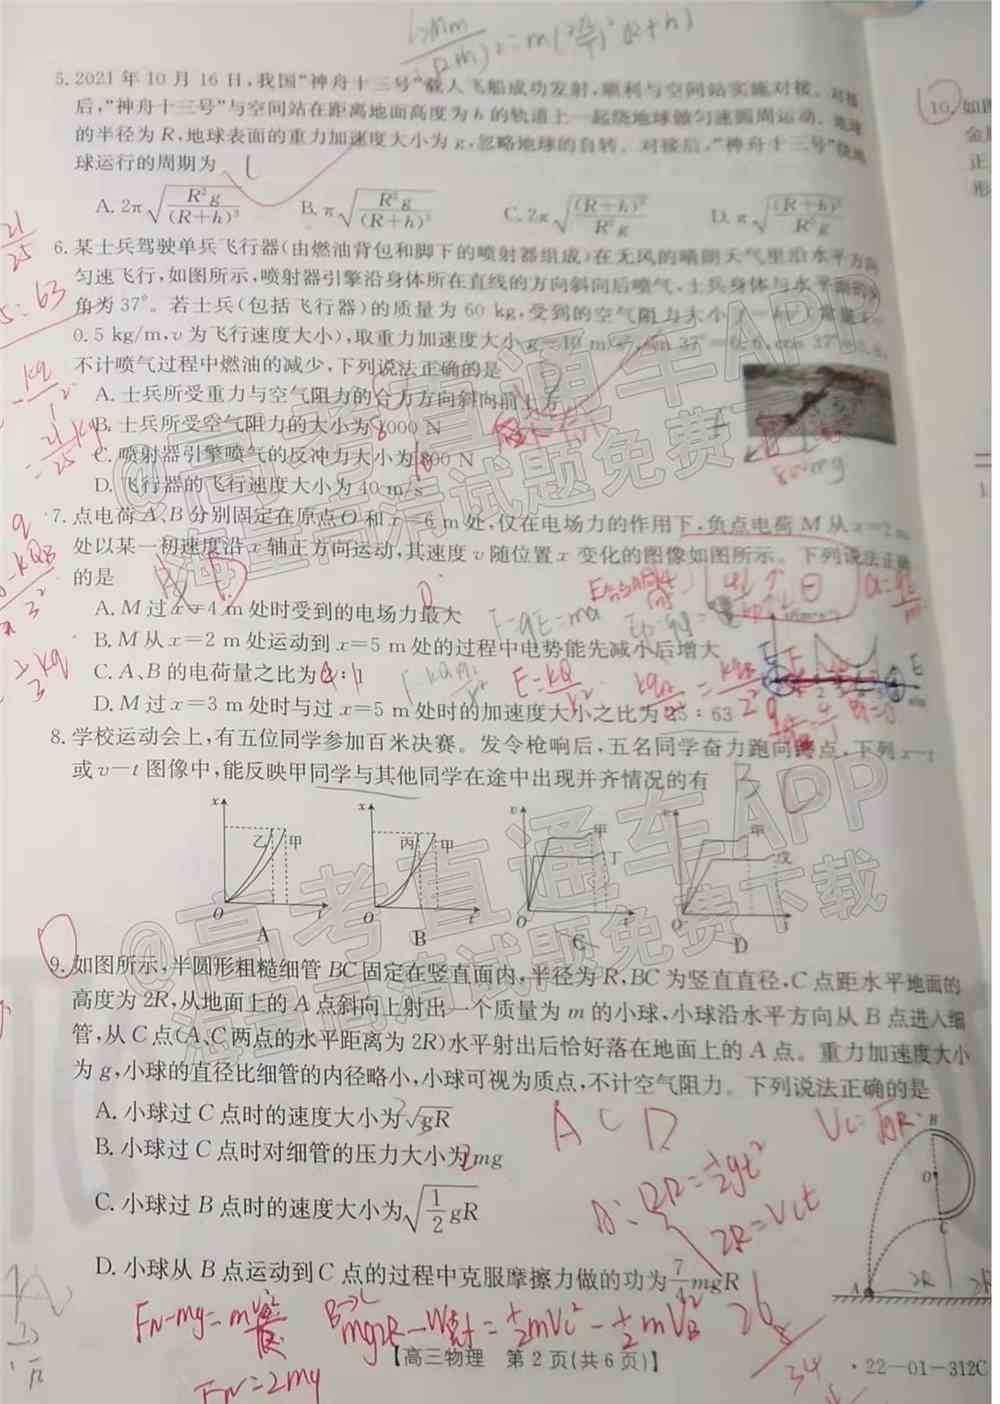 5. 2021 年 10 月 16 日,我国“神舟十三号”载人飞船成功发射,顺利与空间站实施对接。对接
后,“神舟十三号”与空间站在距离地面高度为 h 的轨道上一起绕地球做匀速圆周运动。地球
的半径为 R,地球表面的重力加速度大小为 g,忽略地球的自转。对接后,“神舟十三号”绕地
球运行的周期为
A. 2π√(R²g/(R+h)³) B. π√(R²g/(R+h)³) C. 2π√((R+h)³/R²g) D. π√((R+h)³/R²g)
6. 某士兵驾驶单兵飞行器(由燃油背包和脚下的喷射器组成)在无风的晴朗天气里沿水平方向
匀速飞行,如图所示,喷射器引擎沿身体所在直线的方向斜向后喷气,士兵身体与水平面的夹
角为 37°。若士兵(包括飞行器)的质量为 60 kg,受到的空气阻力大小 f=kv²(常量 k=
0.5 kg/m,v 为飞行速度大小),取重力加速度大小 g=10 m/s²,sin 37°=0.6,cos 37°=0.8,
不计喷气过程中燃油的减少,下列说法正确的是
A. 士兵所受重力与空气阻力的合力方向斜向前上方
B. 士兵所受空气阻力的大小为 8000 N
C. 喷射器引擎喷气的反冲力大小为 800 N
D. 飞行器的飞行速度大小为 40 m/s
7. 点电荷 A、B 分别固定在原点 O 和 x=6 m 处,仅在电场力的作用下,负点电荷 M 从 x=2 m
处以某一初速度沿 x 轴正方向运动,其速度 v 随位置 x 变化的图像如图所示。下列说法正确
的是
A. M 过 x=4 m 处时受到的电场力最大
B. M 从 x=2 m 处运动到 x=5 m 处的过程中电势能先减小后增大
C. A、B 的电荷量之比为 : 1
D. M 过 x=3 m 处时与过 x=5 m 处时的加速度大小之比为 25 : 63
8. 学校运动会上,有五位同学参加百米决赛。发令枪响后,五名同学奋力跑向终点,下列 x-t
或 v-t 图像中,能反映甲同学与其他同学在途中出现并齐情况的有
x 乙 甲 O t A
x 丙 甲 O t B
v 甲 丁 O t C
v 甲 戊 O t D
9. 如图所示,半圆形粗糙细管 BC 固定在竖直面内,半径为 R,BC 为竖直直径,C 点距水平地面的
高度为 2R,从地面上的 A 点斜向上射出一个质量为 m 的小球,小球沿水平方向从 B 点进入细
管,从 C 点(A、C 两点的水平距离为 2R)水平射出后恰好落在地面上的 A 点。重力加速度大小
为 g,小球的直径比细管的内径略小,小球可视为质点,不计空气阻力。下列说法正确的是
A. 小球过 C 点时的速度大小为√gR
B. 小球过 C 点时对细管的压力大小为2mg
C. 小球过 B 点时的速度大小为√(1/2 gR)
D. 小球从 B 点运动到 C 点的过程中克服摩擦力做的功为 7/4 mgR
A C D
2R=½gt²
2R=Vct
B O C A 2R 2R
FN=2mg
【高三物理 第 2 页(共 6 页)】
·22-01-312C